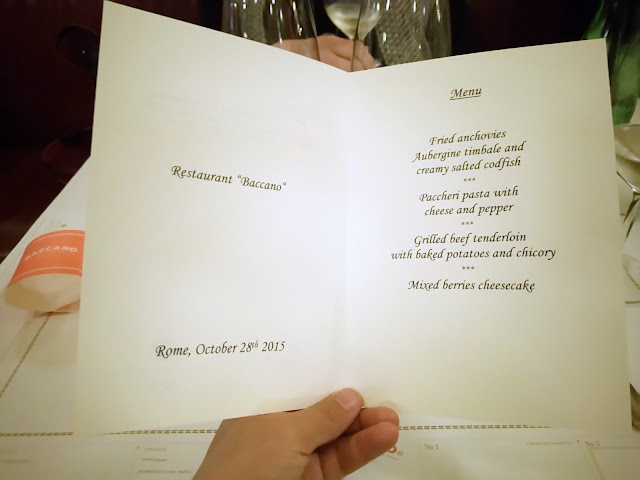 Restaurant "Baccano"
Rome, October 28th 2015
Menu
Fried anchovies
Aubergine timbale and
creamy salted codfish
***
Paccheri pasta with
cheese and pepper
***
Grilled beef tenderloin
with baked potatoes and chicory
***
Mixed berries cheesecake
BACCANO
No 1
No 2